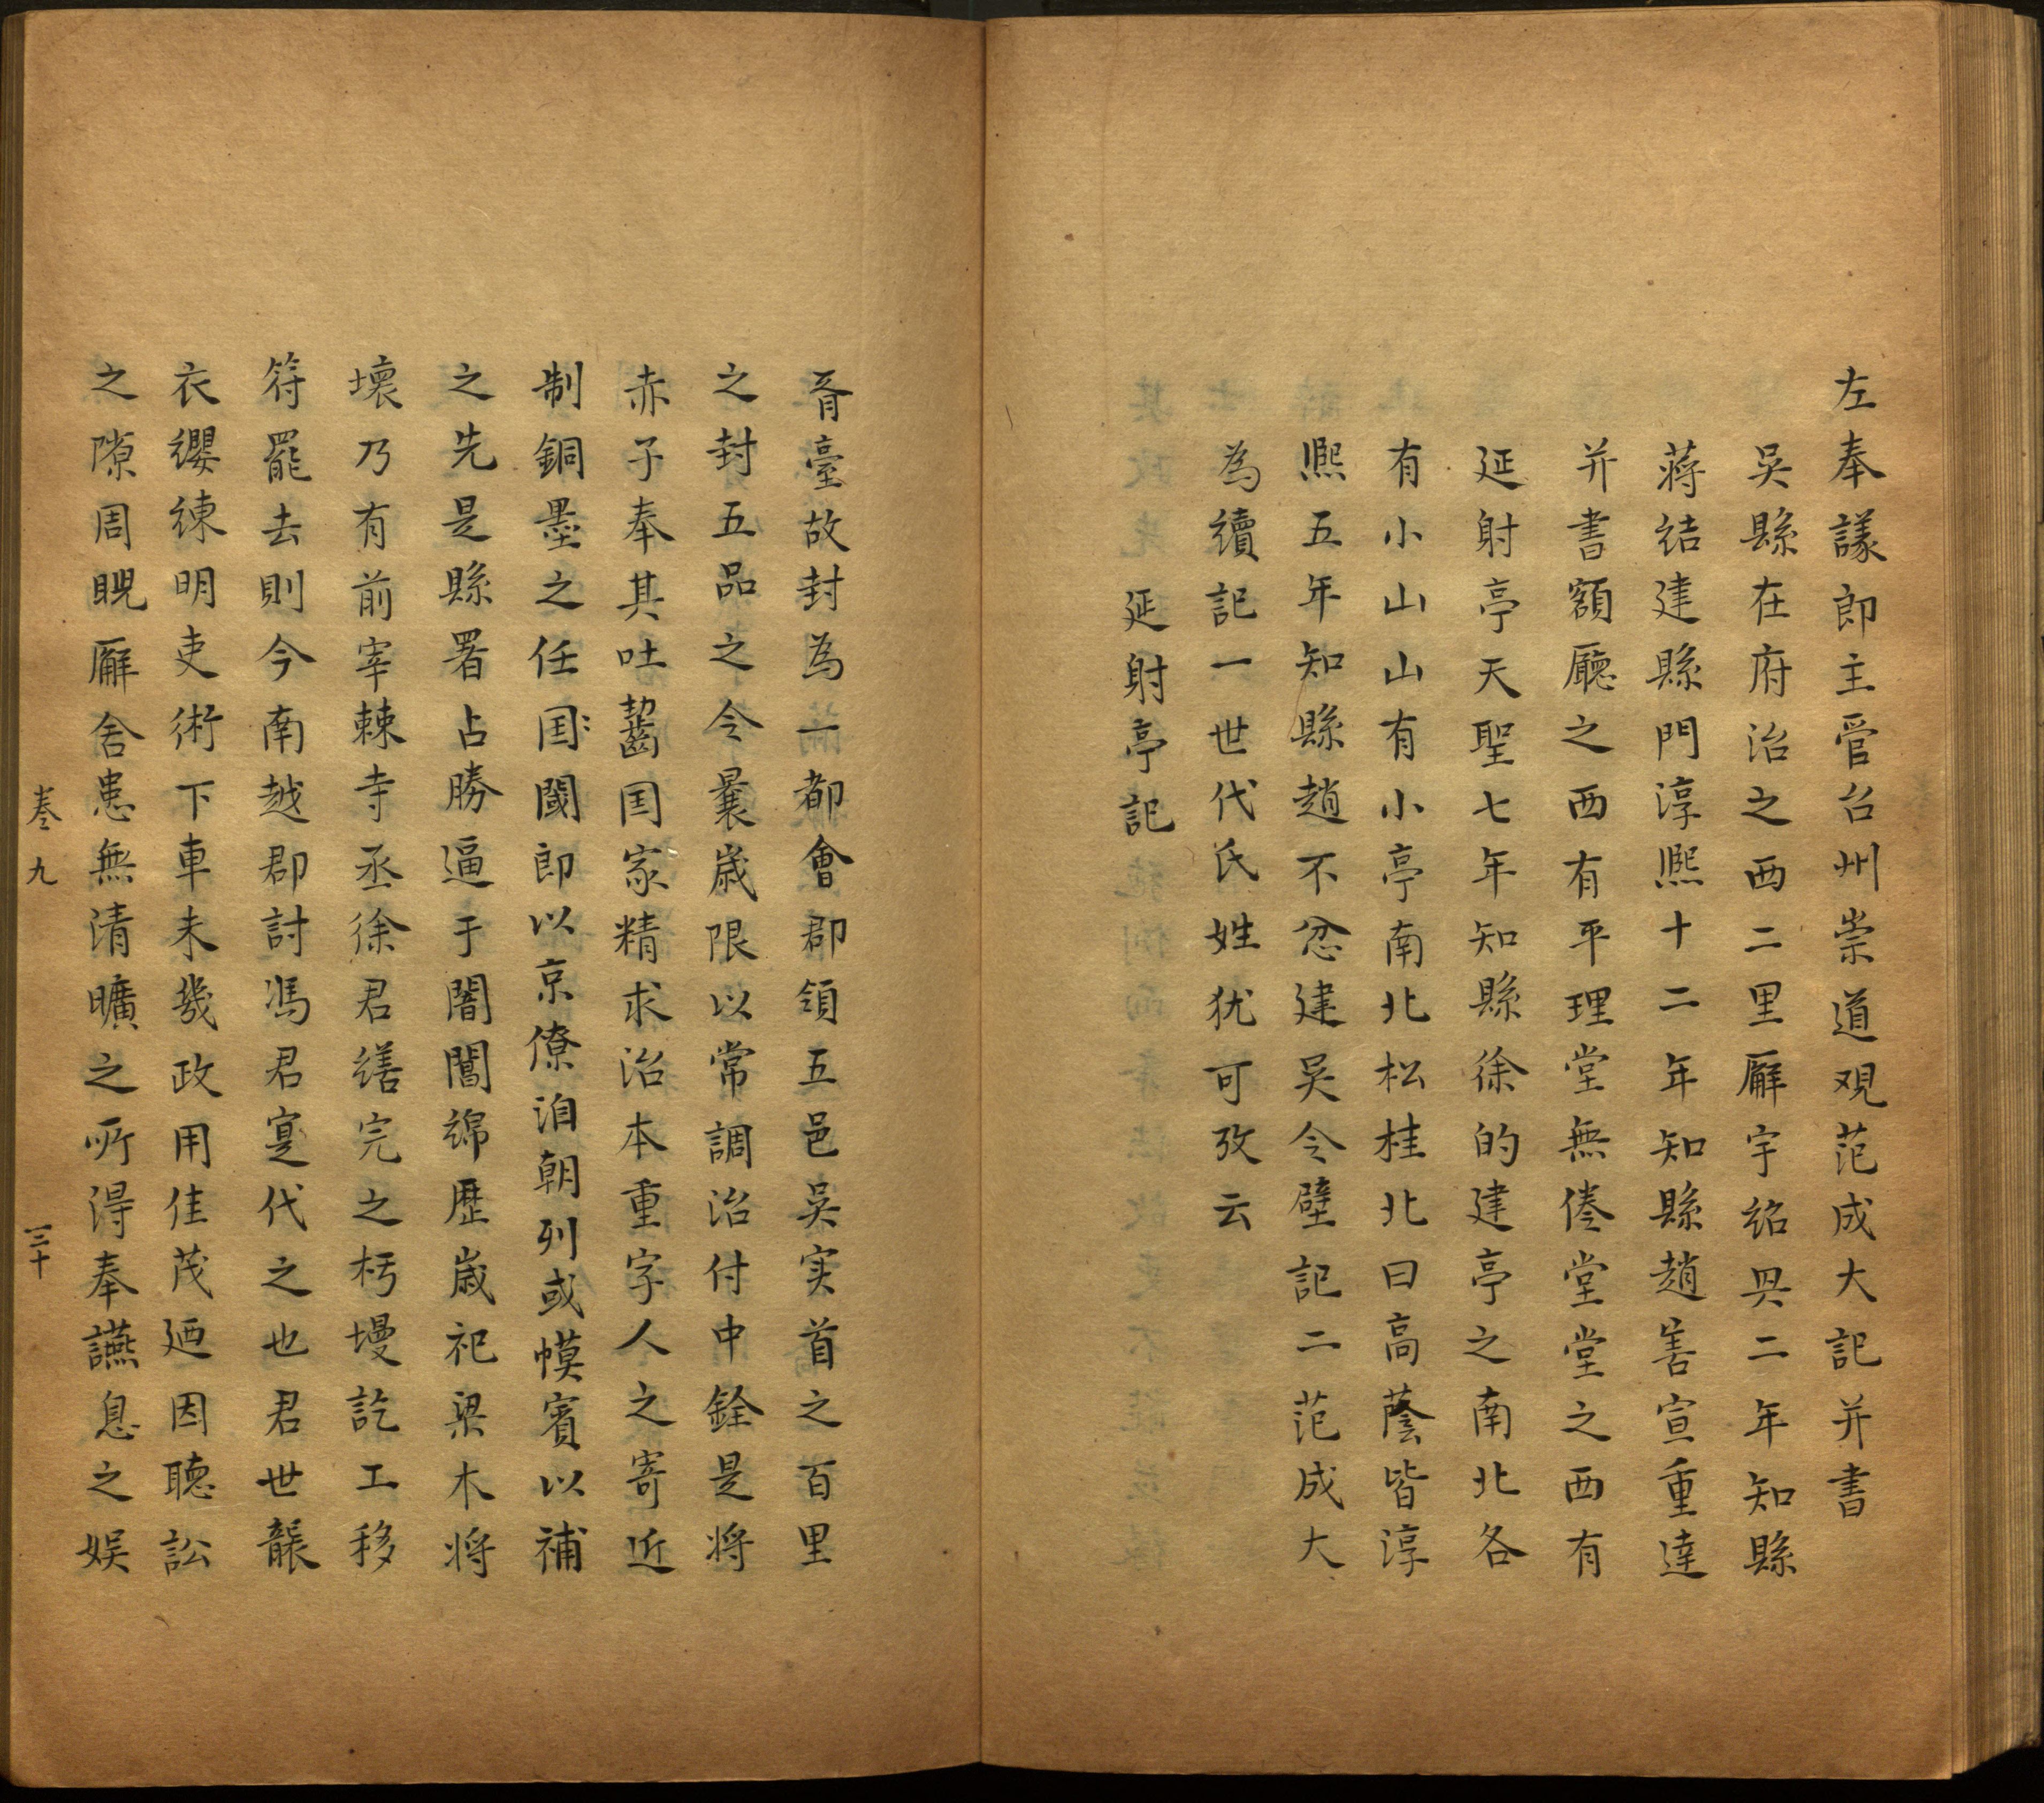 左奉議郎主管台州崇道观范成大記并書
吳縣在府治之西二里廨宇紹興二年知縣
蒋結建縣門淳熙十二年知縣趙善宣重達
并書額廳之西有平理堂無倦堂堂之西有
延射亭天聖七年知縣徐的建亭之南北各
有小山山有小亭南北松桂北曰高蔭皆淳
熙五年知縣趙不忿建吳令壁記二范成大
為續記一世代氏姓犹可攷云
延射亭記
胥臺故封為一都會郡領五邑吳实首之百里
之封五品之令曩歳限以常調治付中銓是将
赤子奉其吐齧囯家精求治本重字人之寄近
制銅墨之任囯閾即以京僚洎朝列或幙賓以補
之先是縣署占勝逼于闇闠綿歴歳祀梁木将
壞乃有前宰棘寺丞徐君繕完之杇墁訖工移
符罷去則今南越郡討馮君寔代之也君世襲
衣纓練明吏術下車未幾政用佳茂廼因聴訟
之隙周覩廨舍患無清曠之所得奉讌息之娱
卷九
三十